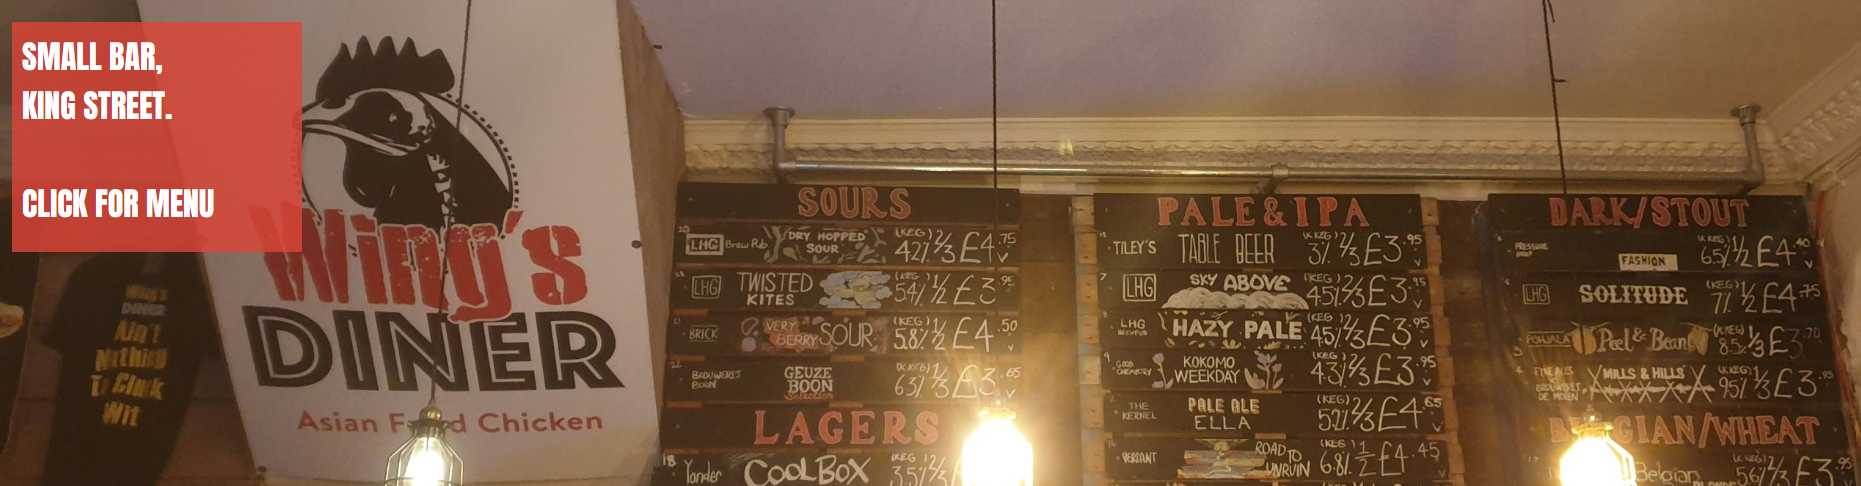 SMALL BAR,
KING STREET.
CLICK FOR MENU
Wing's
DINER
Asian Fried Chicken
Wing's
DINER
Ain't
Nothing
To Cluck
Wit
SOURS
LHG Brew Pub DRY HOPPED SOUR (KEG) 4.2% 2/3 £4.75
LHG TWISTED KITES (KEG) 5.4% 1/2 £3.95
BRICK VERY BERRY SOUR (KEG) 5.8% 1/2 £4.50
BROUWERIJ BOON GEUZE BOON Selection (K.KEG) 6.3% 1/3 £3.65
LAGERS
18 Yonder COOLBOX (KEG) 3.5% 2/3
PALE & IPA
TILEY'S TABLE BEER (KEG) 3% 2/3 £3.95
7 LHG SKY ABOVE (KEG) 4.5% 2/3 £3.95
LHG HAZY PALE (KEG) 4.5% 2/3 £3.95
9 GOOD CHEMISTRY KOKOMO WEEKDAY (KEG) 4.3% 2/3 £3.95
THE KERNEL PALE ALE ELLA (KEG) 5.2% 2/3 £4.65
VERDANT ROAD TO UNRUIN (KEG) 6.8% 1/2 £4.45
DARK/STOUT
PRESSURE DROP FASHION (K KEG) 6.5% 1/2 £4.40
LHG SOLITUDE (KEG) 7% 1/2 £4.75
POHJALA Peel & Bean (K.KEG) 8.5% 1/3 £3.70
FYNE ALES BROUWERIJ DE MOLEN MILLS & HILLS (K.KEG) 9.5% 1/3 £3.95
BELGIAN/WHEAT
Belgian BLONDE (K KEG) 5.6% 2/3 £3.95